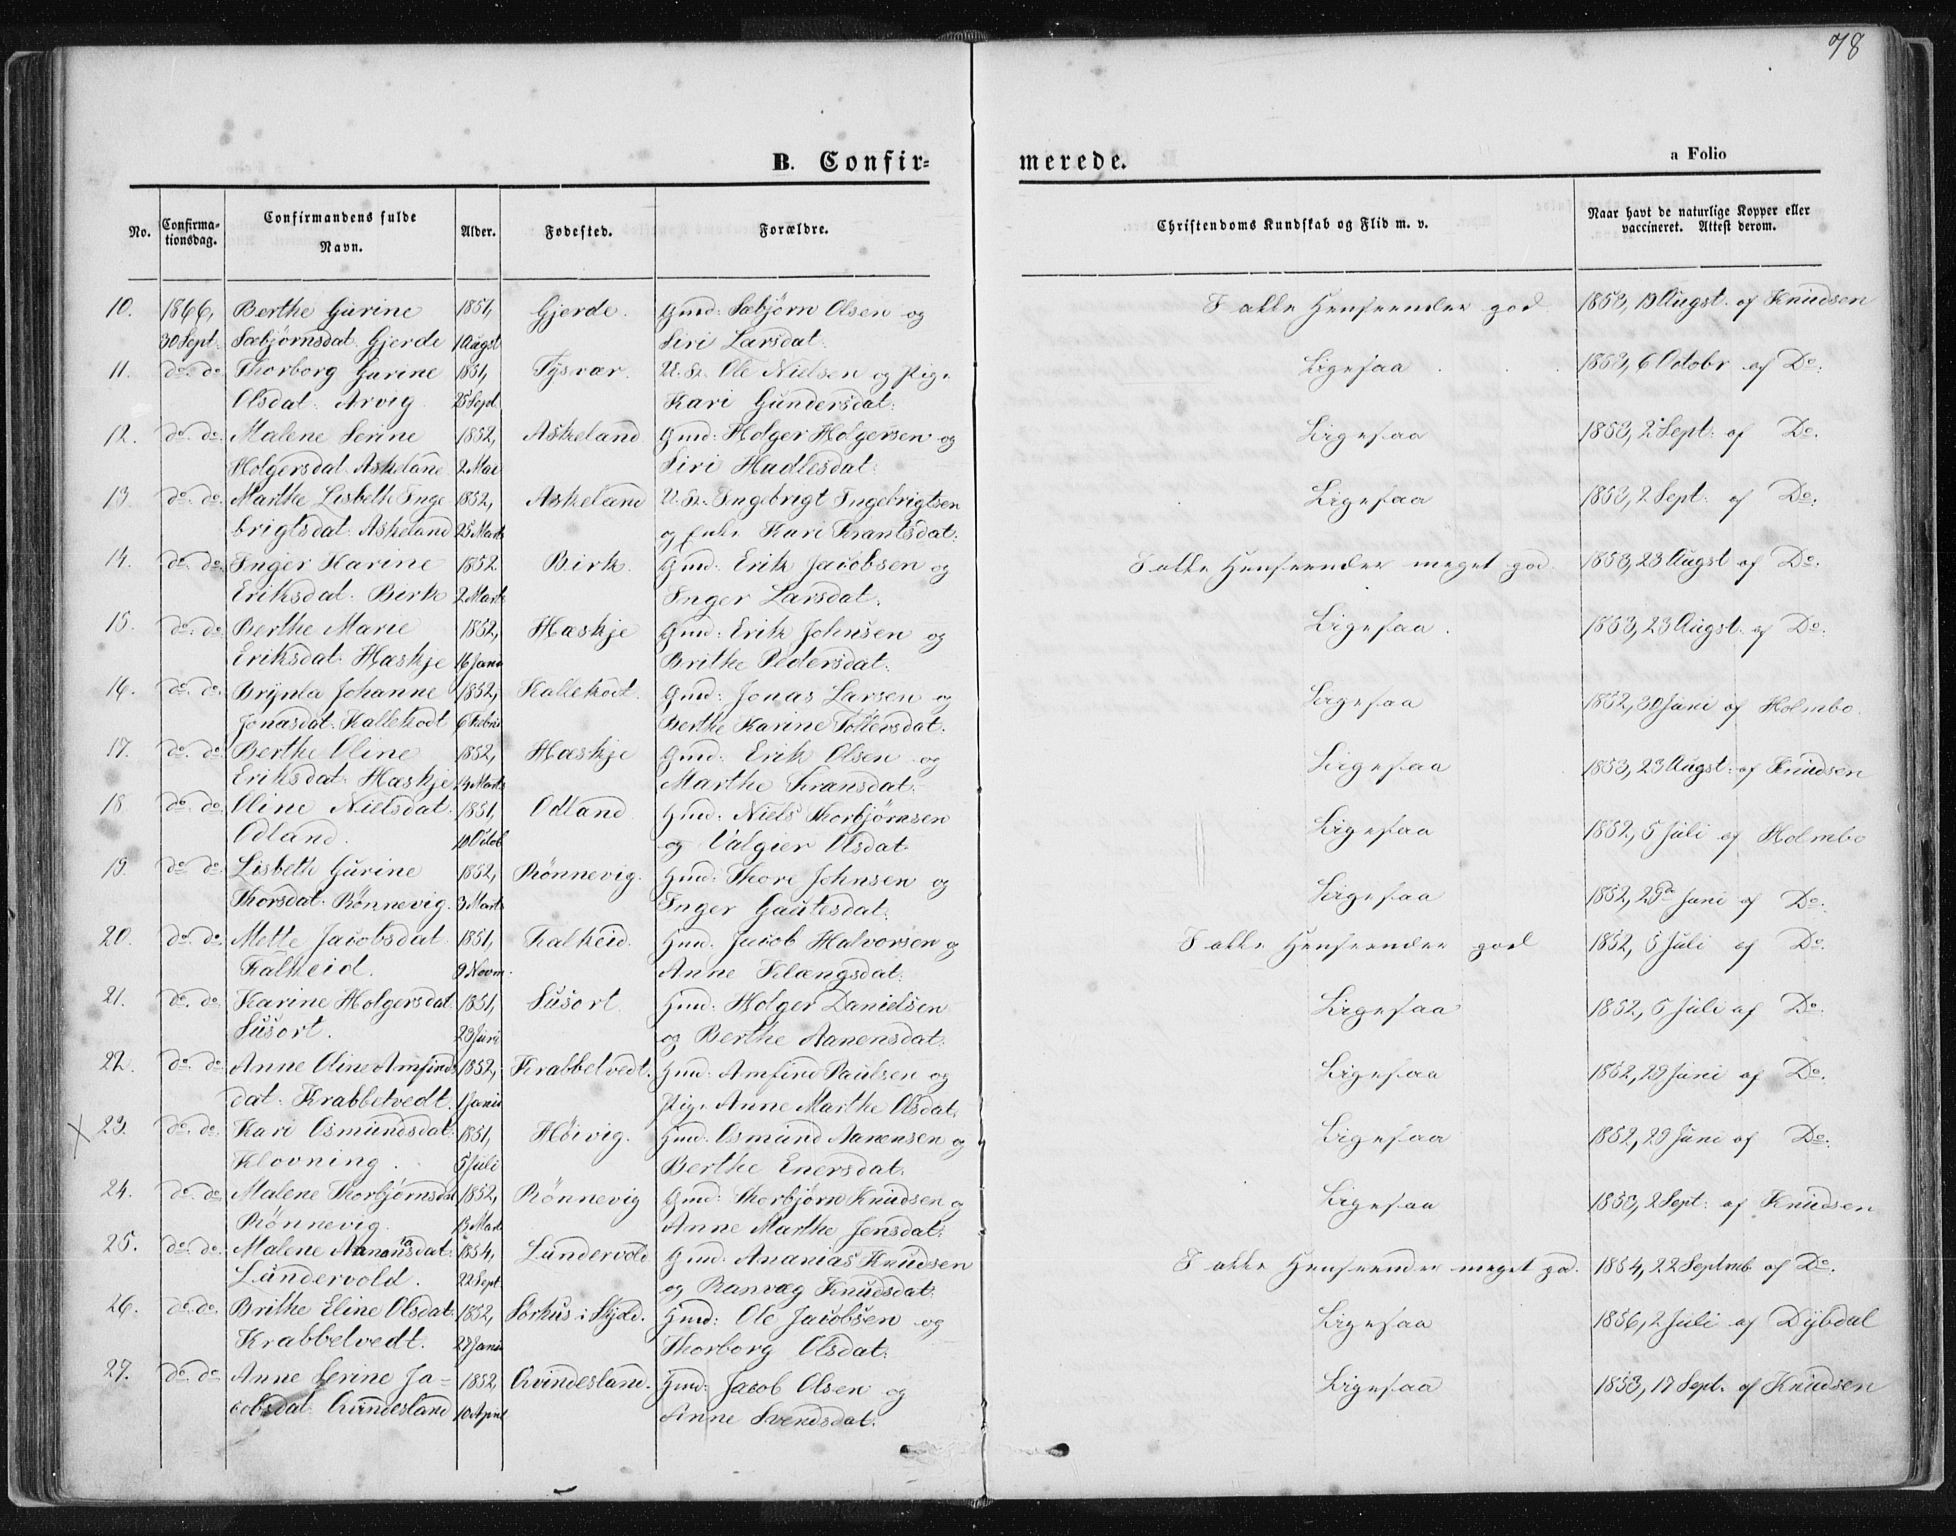 78
B. Confir-
merede.
a Folio
No. Confirma-tionsdag. Confirmandens fulde Navn. Alder. Fødested. Forældre. Christendoms Kundskab og Flid m. v. Naar havt de naturlige Kopper eller vaccineret. Attest derom.
10. 1866, Berthe Gurine 1851, Gjerde. Gmd: Sæbjørn Olsen og I alle Henseender god 1853, 19 Augst. af Knudsen
30 Sept. Sæbjørnsdat. Gjerde 1 Augst Siri Larsdat.
11. do. do. Thorborg Gurine 1851, Tysvær. U. K. Ole Nielsen og Pige Ligesaa 1853, 6 Octobr af Do.
Olsdat. Arvig 25 Sept. Kari Gundersdat.
12. do. do. Malene Serine 1852, Askeland Gmd: Holger Holgersen og Ligesaa 1853, 2 Sept: af Do.
Holgersdat. Askelane 2 Mai Siri Hadlesdat:
13. do. do. Marthe Lisbeth Inge 1852, Askeland U. K. Ingebrigt Ingebrigtsen Ligesaa 1853, 2 Sept: af Do.
brigtsdat. Askeland 25 Marts og Enke Kari Trantsdat:
14. do. do. Inger Karine 1852 Birk. Gmd: Erik Jacobsen og I alle Henseender meget god. 1853, 23 Augst af Do.
Eriksdat. Birk 2 Marts Inger Larsdat.
15. do. do. Berthe Marie 1852, Hæskje Gmd: Erik Johnsen og Ligesaa. 1853, 23 Augst. af Do.
Eriksdat. Hæskje 16 Janu Brithe Pedersdat.
16. do. do. Brynla Johanne 1852, Kallekodt. Gmd: Jonas Larsen og Ligesaa 1852, 30 Juni af Holmbo.
Jonasdat. Kallekodt 6 Febru Berthe Karine Tollersdat.
17. do. do. Berthe Oline 1852, Hæskje Gmd: Erik Olsen og Ligesaa 1853, 23 Augst: af Knudsen
Eriksdat. Hæskje 24 Marts Marthe Transdat.
18. do. do. Oline Nielsdat. 1851, Odland. Gmd: Niels Thorbjørnsen Ligesaa 1852, 5 Juli af Holmbo
Odland. 10 Octob og Valgier Olsdat.
19. do. do. Lisbeth Gurine 1852, Rønnevig. Gmd: Thore Johnsen og Ligesaa 1852, 29de Juni af Do.
Thorsdat. Rønnevig. 3 Marts Inger Gautesdat.
20. do. do. Mette Jacobsdat. 1851, Falkeid. Gmd: Jacob Halvorsen og I alle Henseender god 1852, 5 Juli af Do.
Falkeid. 9 Novm. Anne Klængsdat.
21. do. do. Karine Holgersdat. 1851, Susort Gmd: Holger Danielsen Ligesaa 1852, 5 Juli af Do.
Susort. 23 Juni og Berthe Aanensdat.
22. do. do. Anne Oline Amfinds 1852, Krabbetvedt. Gmd: Amfind Paulsen og Ligesaa 1852, 29 Juni af Do.
dat. Krabbetvedt. 1 Janu Pige Anne Marthe Olsdat.
X 23. do. do. Kari Osmundsdat. 1851, Høivig. Gmd: Osmund Aanensen og Ligesaa 1852, 29 Juni af Do.
Klovning. 5 Juli Berthe Enersdat.
24. do. do. Malene Thorbjørnsdat 1852, Rønnevig Gmd: Thorbjørn Knudsen og Ligesaa 1853, 2 Sept: af Knudsen
Rønnevig. 13 Marts Anne Marthe Jensdat.
25. do. do. Malene Ananiasdat. 1854, Lundervold Gmd: Ananias Knudsen I alle Henseender meget god. 1854, 22 Septemb af Do.
Lundervold. 22 Sept. og Ranvæg Knudsdat.
26. do. do. Brithe Eline Olsdat. 1852, Sørhus i Skjold. Gmd: Ole Jacobsen og Ligesaa 1856, 2 Juli af Dybdal
Krabbetvedt. 27 Janu Thorborg Olsdat.
27. do. do. Anne Serine Ja- 1852 Qvindesland. Gmd: Jacob Olsen og Ligesaa 1853, 17 Sept. af Knudsen
cobsdat. Qvindesland 10 April Anne Svendsdat.